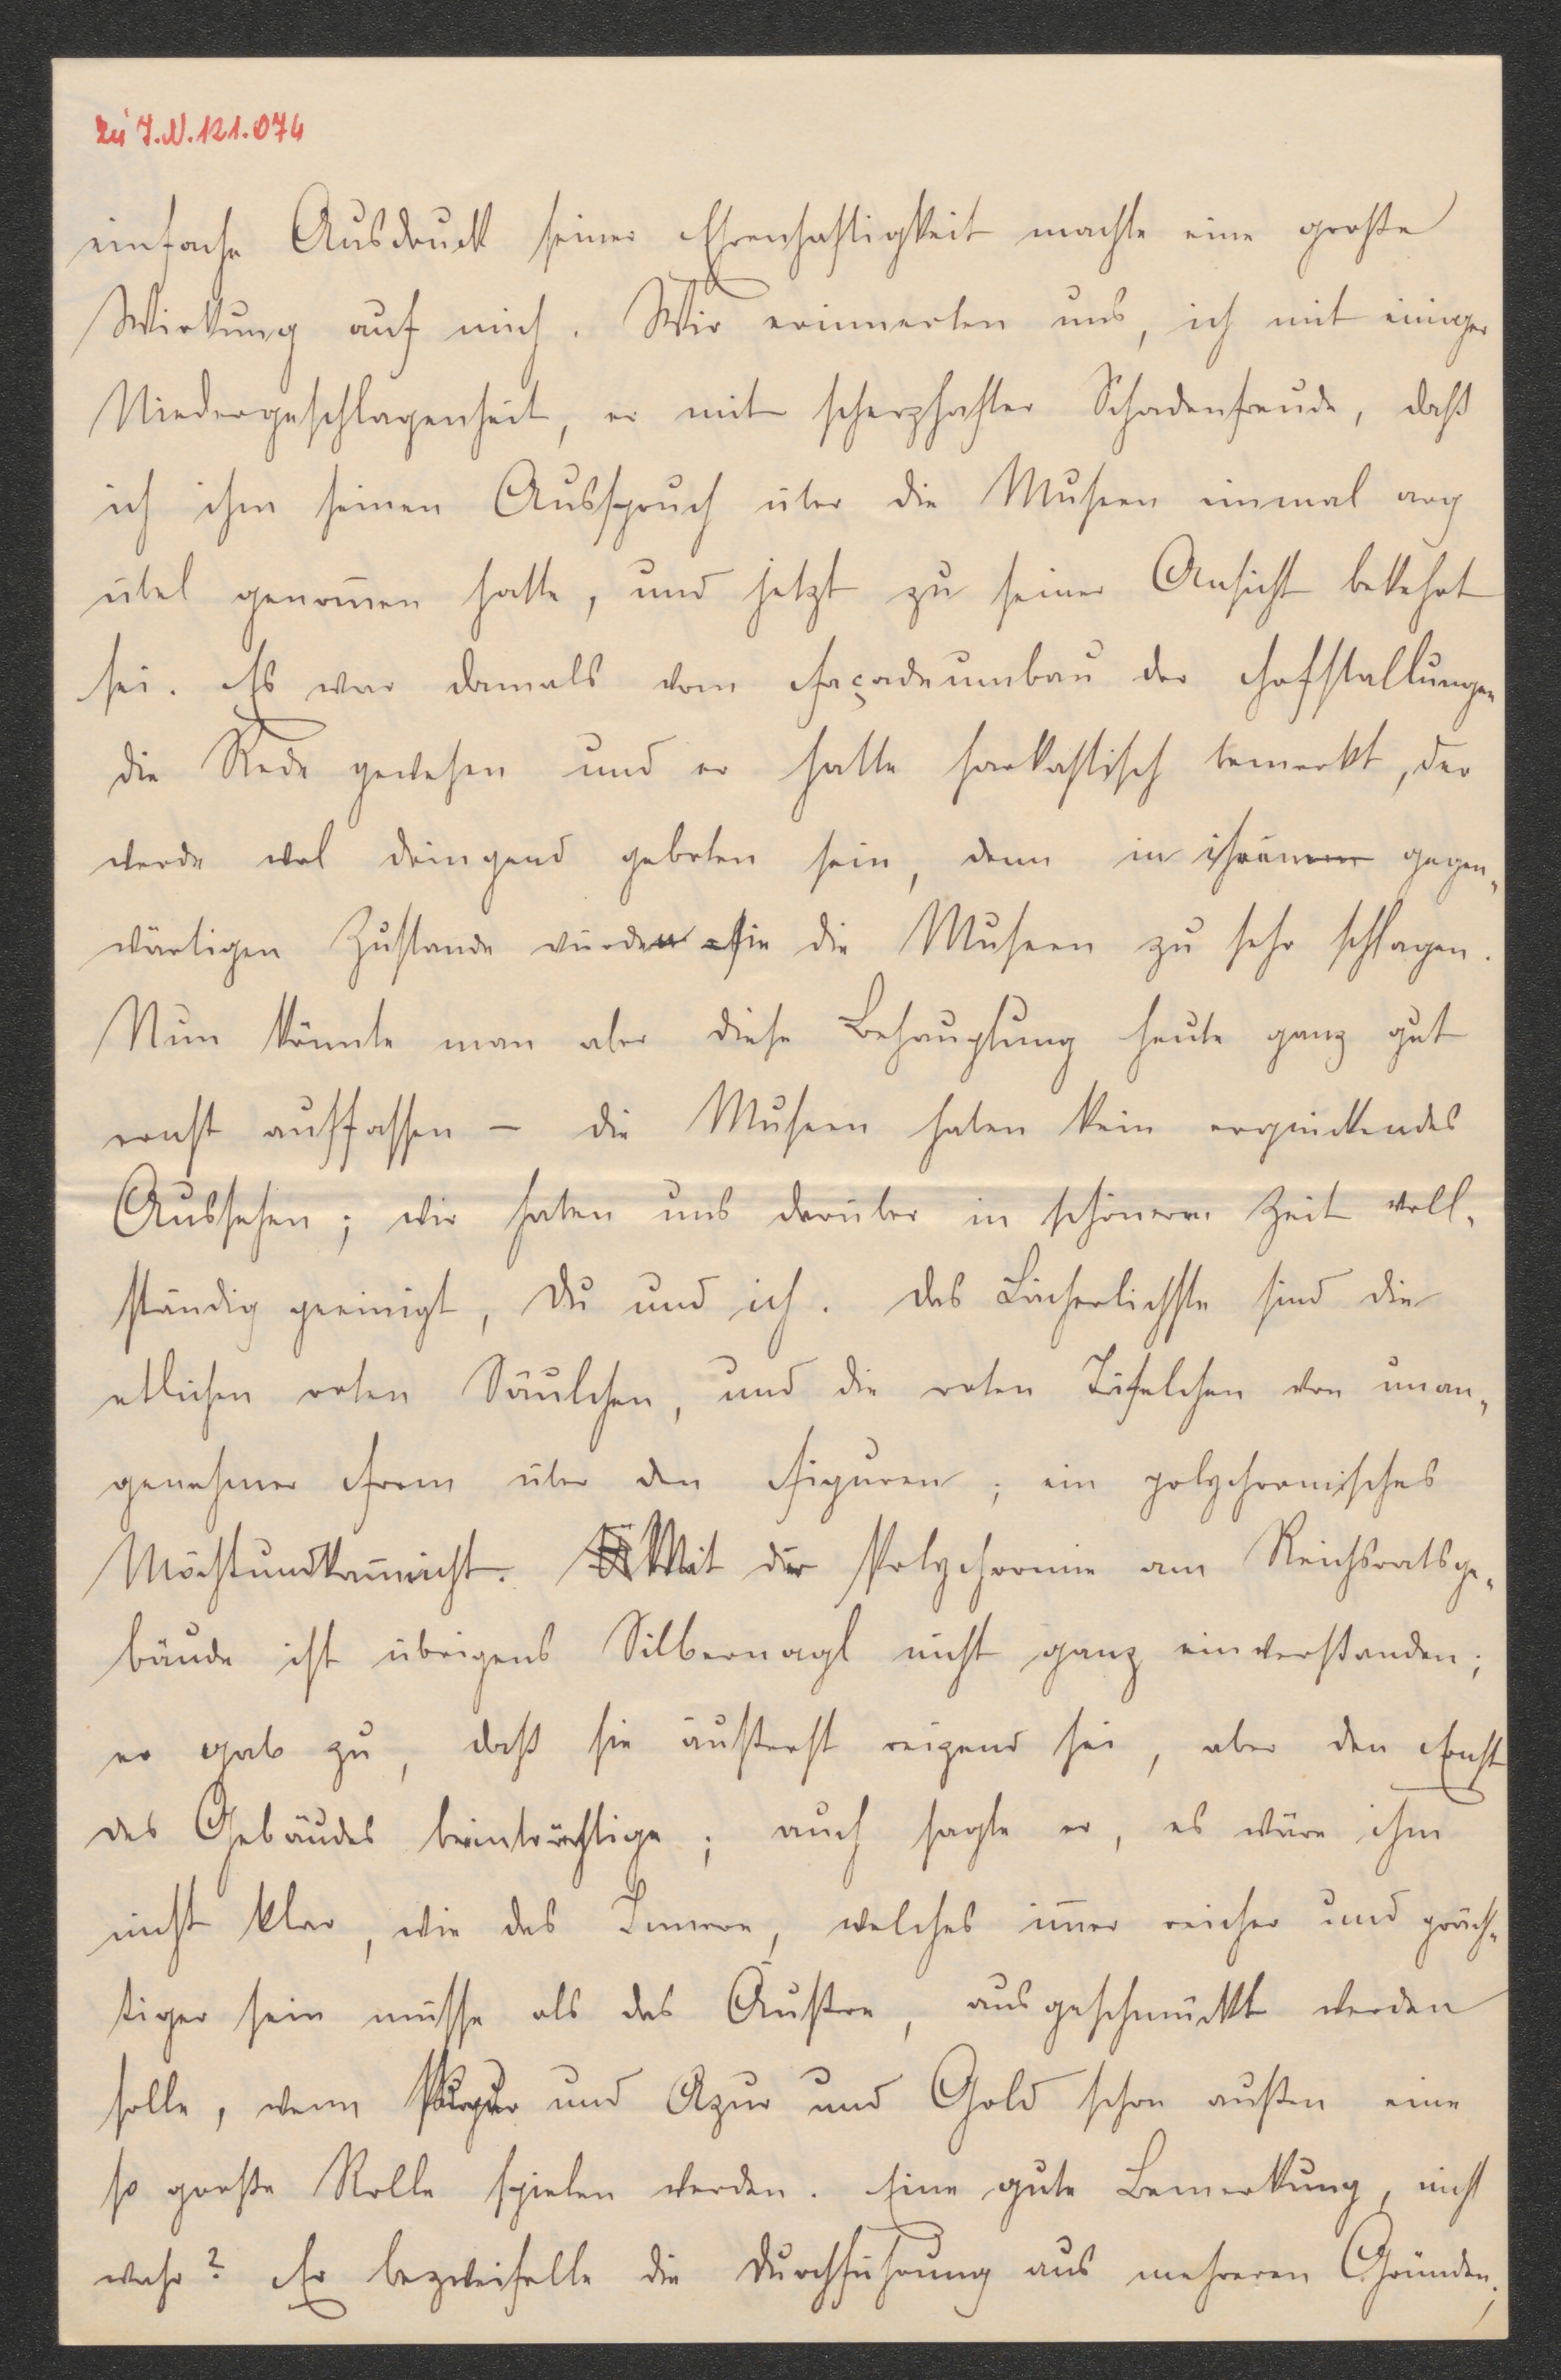 zu I.N. 121.074
einfache Ausdruck seiner Ehrenhaftigkeit machte eine große
Wirkung auf mich. Wir erinnerten uns, ich mit einiger
Niedergeschlagenheit, er mit scherzhafter Schadenfreude, daß
ich ihm seinen Ausspruch über die Museen einmal arg
übel genom̄en hatte, und jetzt zu seiner Ansicht bekehrt
sei. Es war damals vom Façadeumbau der Hofstallungen
die Rede gewesen und er hatte sarkastisch bemerkt, der
werde wol dringend geboten sein, denn in gegen-
wärtigen Zustande würden sie die Museen zu sehr schlagen.
Nun könnte man aber diese Behauptung heute ganz gut
ernst auffassen – die Museen haben kein erquickendes
Aussehen; wir haben uns darüber in schönerer Zeit voll-
ständig geeinigt, Du und ich. Das Lächerlichste sind die
etlichen roten Säulchen, und die roten Täfelchen von unan-
genehmer Form über den Figuren; ein polychromisches
Möchtundkan̄nicht. Mit der Polychromie am Reichsratsge-
bäude ist übrigens Silbernagl nicht ganz einverstanden;
er gab zu, daß sie äußerst reizend sei, aber den Ernst
des Gebäudes beinträchtige; auch sagte er, es wäre ihm
nicht klar, wie das Innere, welches im̄er reicher und präch-
tiger sein müsse als das Äußere, ausgeschmückt werden
solle, wenn Purpur und Azur und Gold schon außen eine
so große Rolle spielen werden. Eine gute Bemerkung, nicht
wahr? Er bezweifelte die Durchführung aus mehreren Gründen;